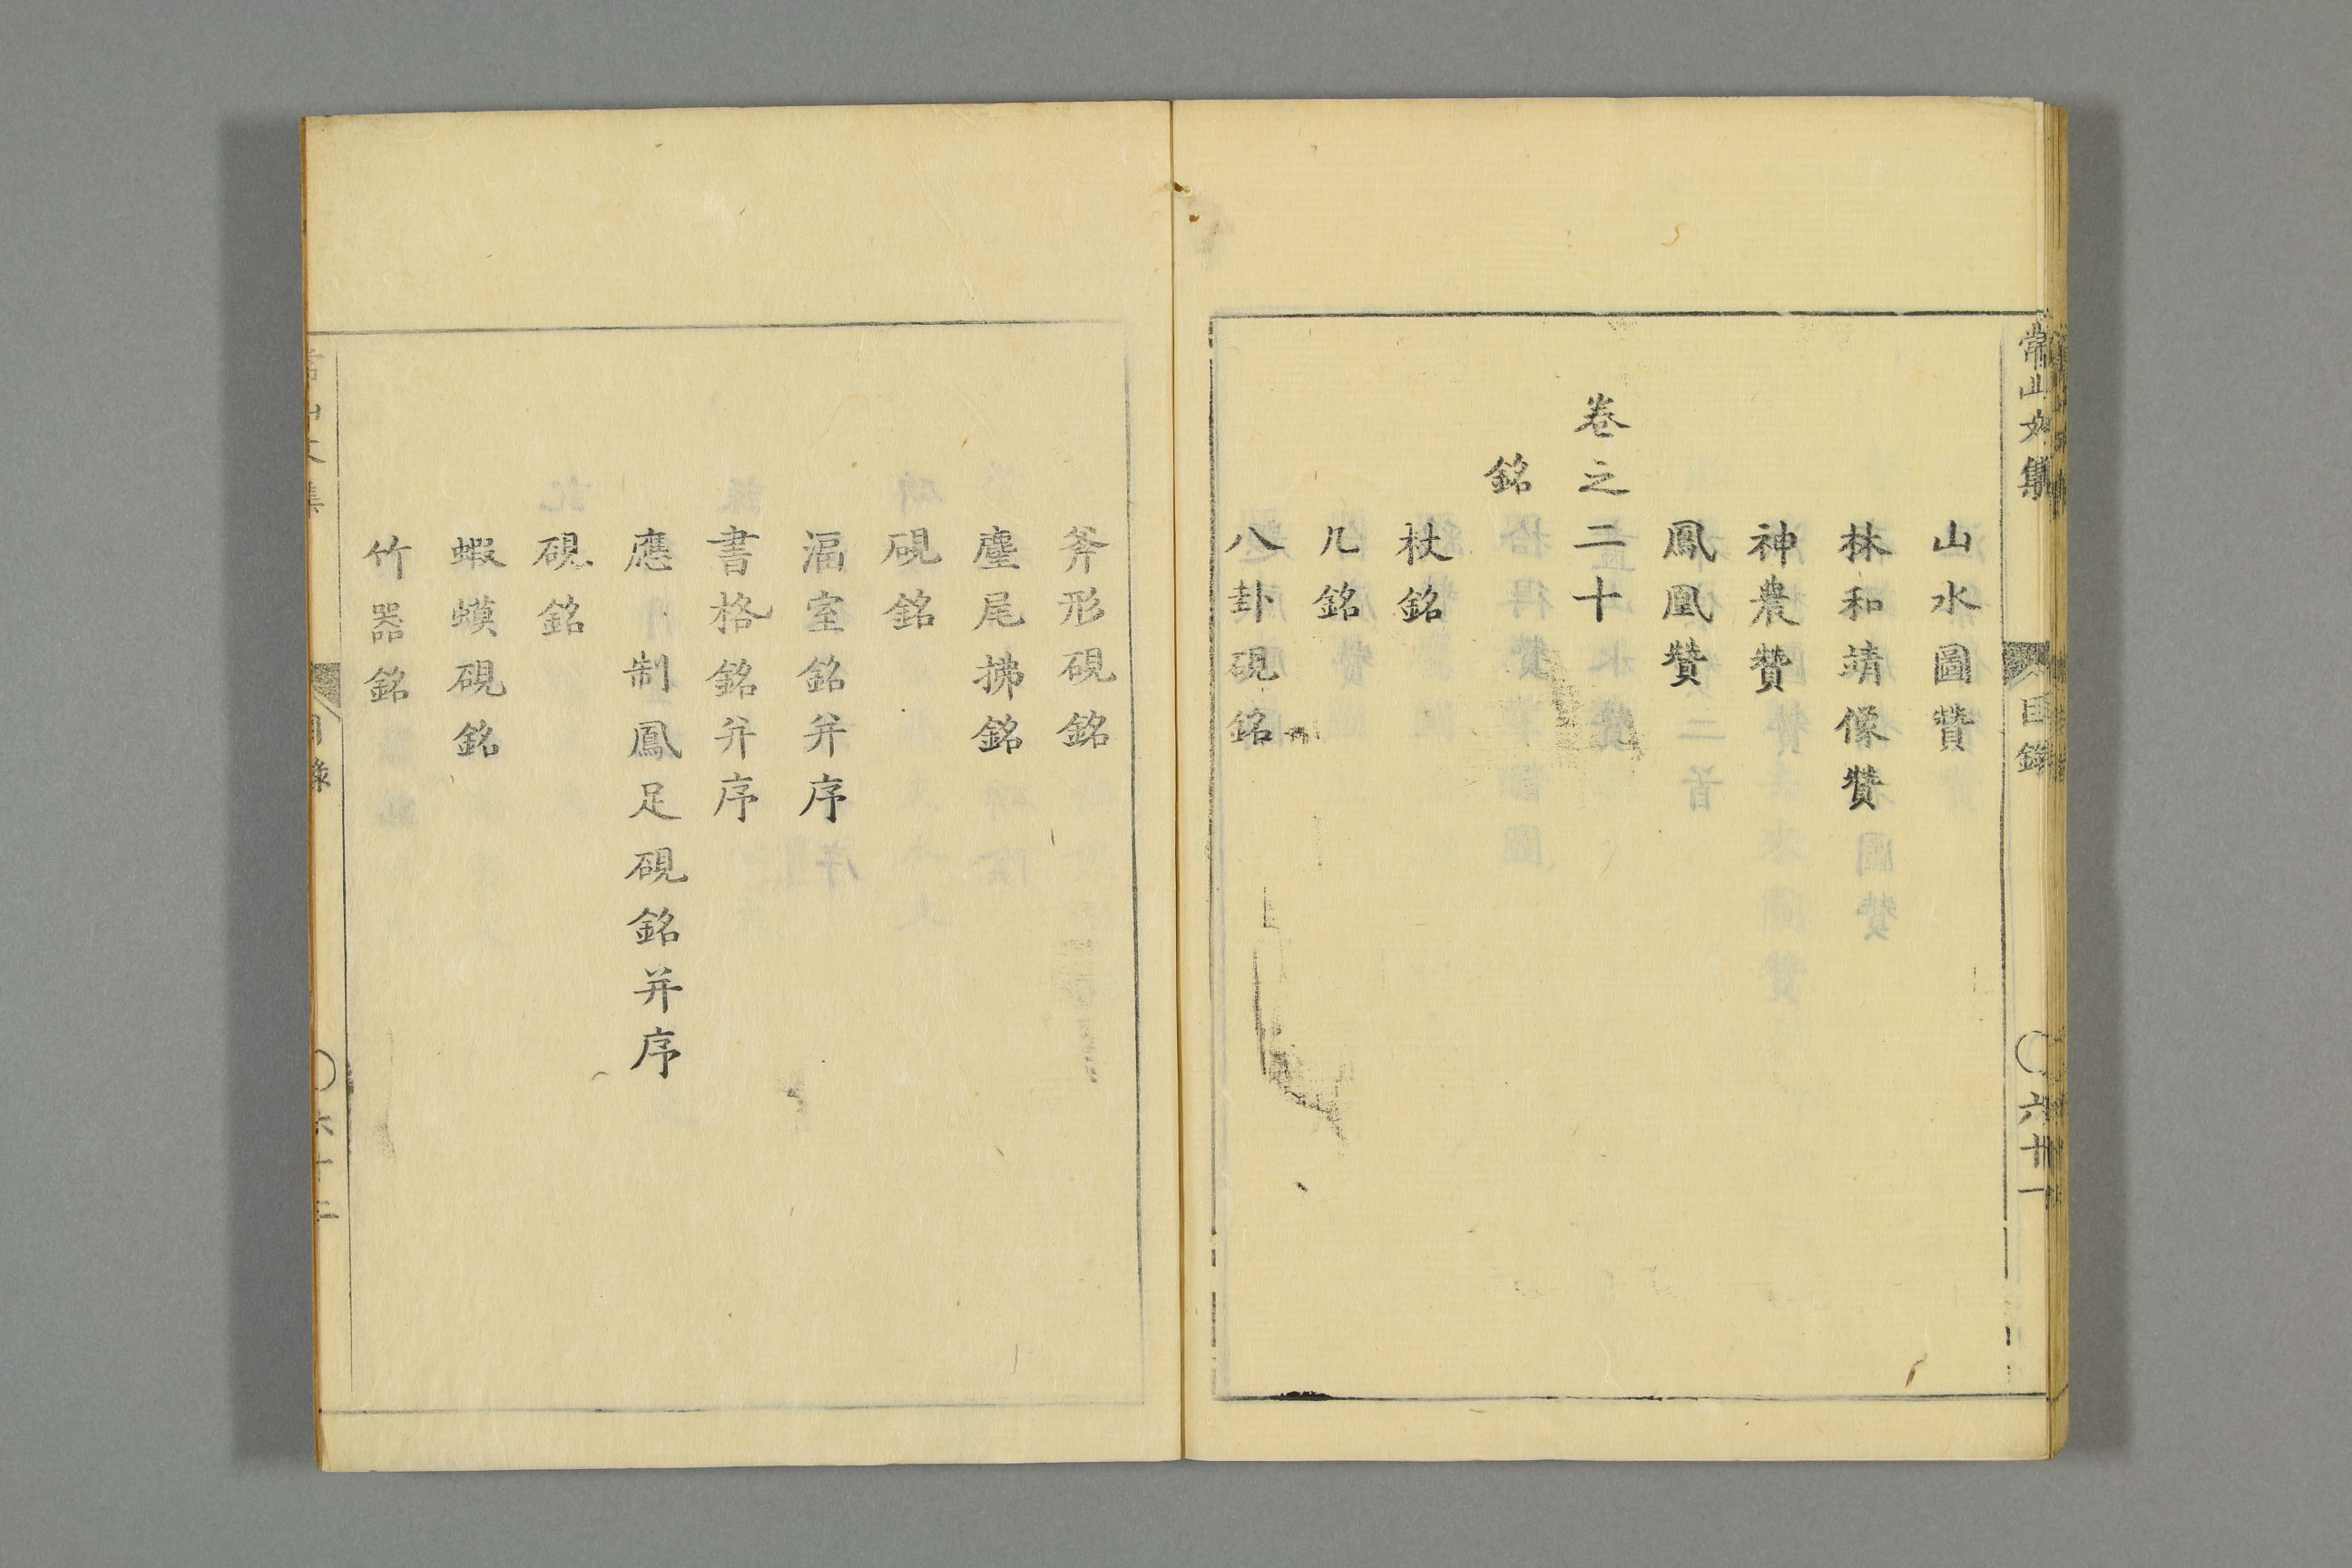 常山文集
目錄
六十一
山水圖贊
林和靖像贊
神農贊
鳳凰贊
卷之二十
銘
杖銘
几銘
八卦硯銘
斧形硯銘
麈尾拂銘
硯銘
湢室銘并序
書格銘并序
應制鳳足硯銘并序
硯銘
蝦蟆硯銘
竹器銘